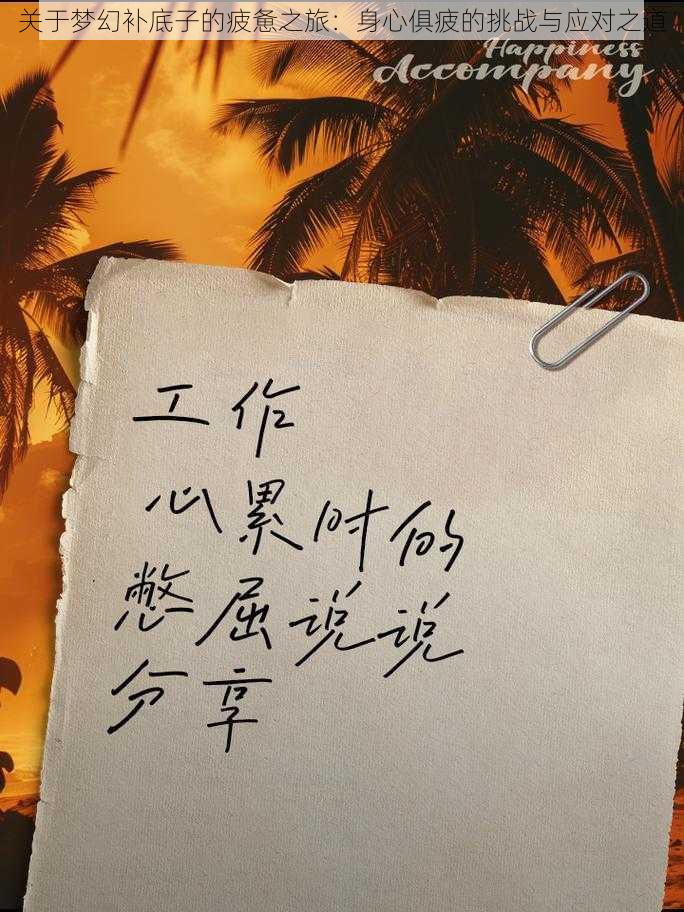 关于梦幻补底子的疲惫之旅：身心俱疲的挑战与应对之道
Happiness
Accompany
工作
心累时的
憋屈说说
分享